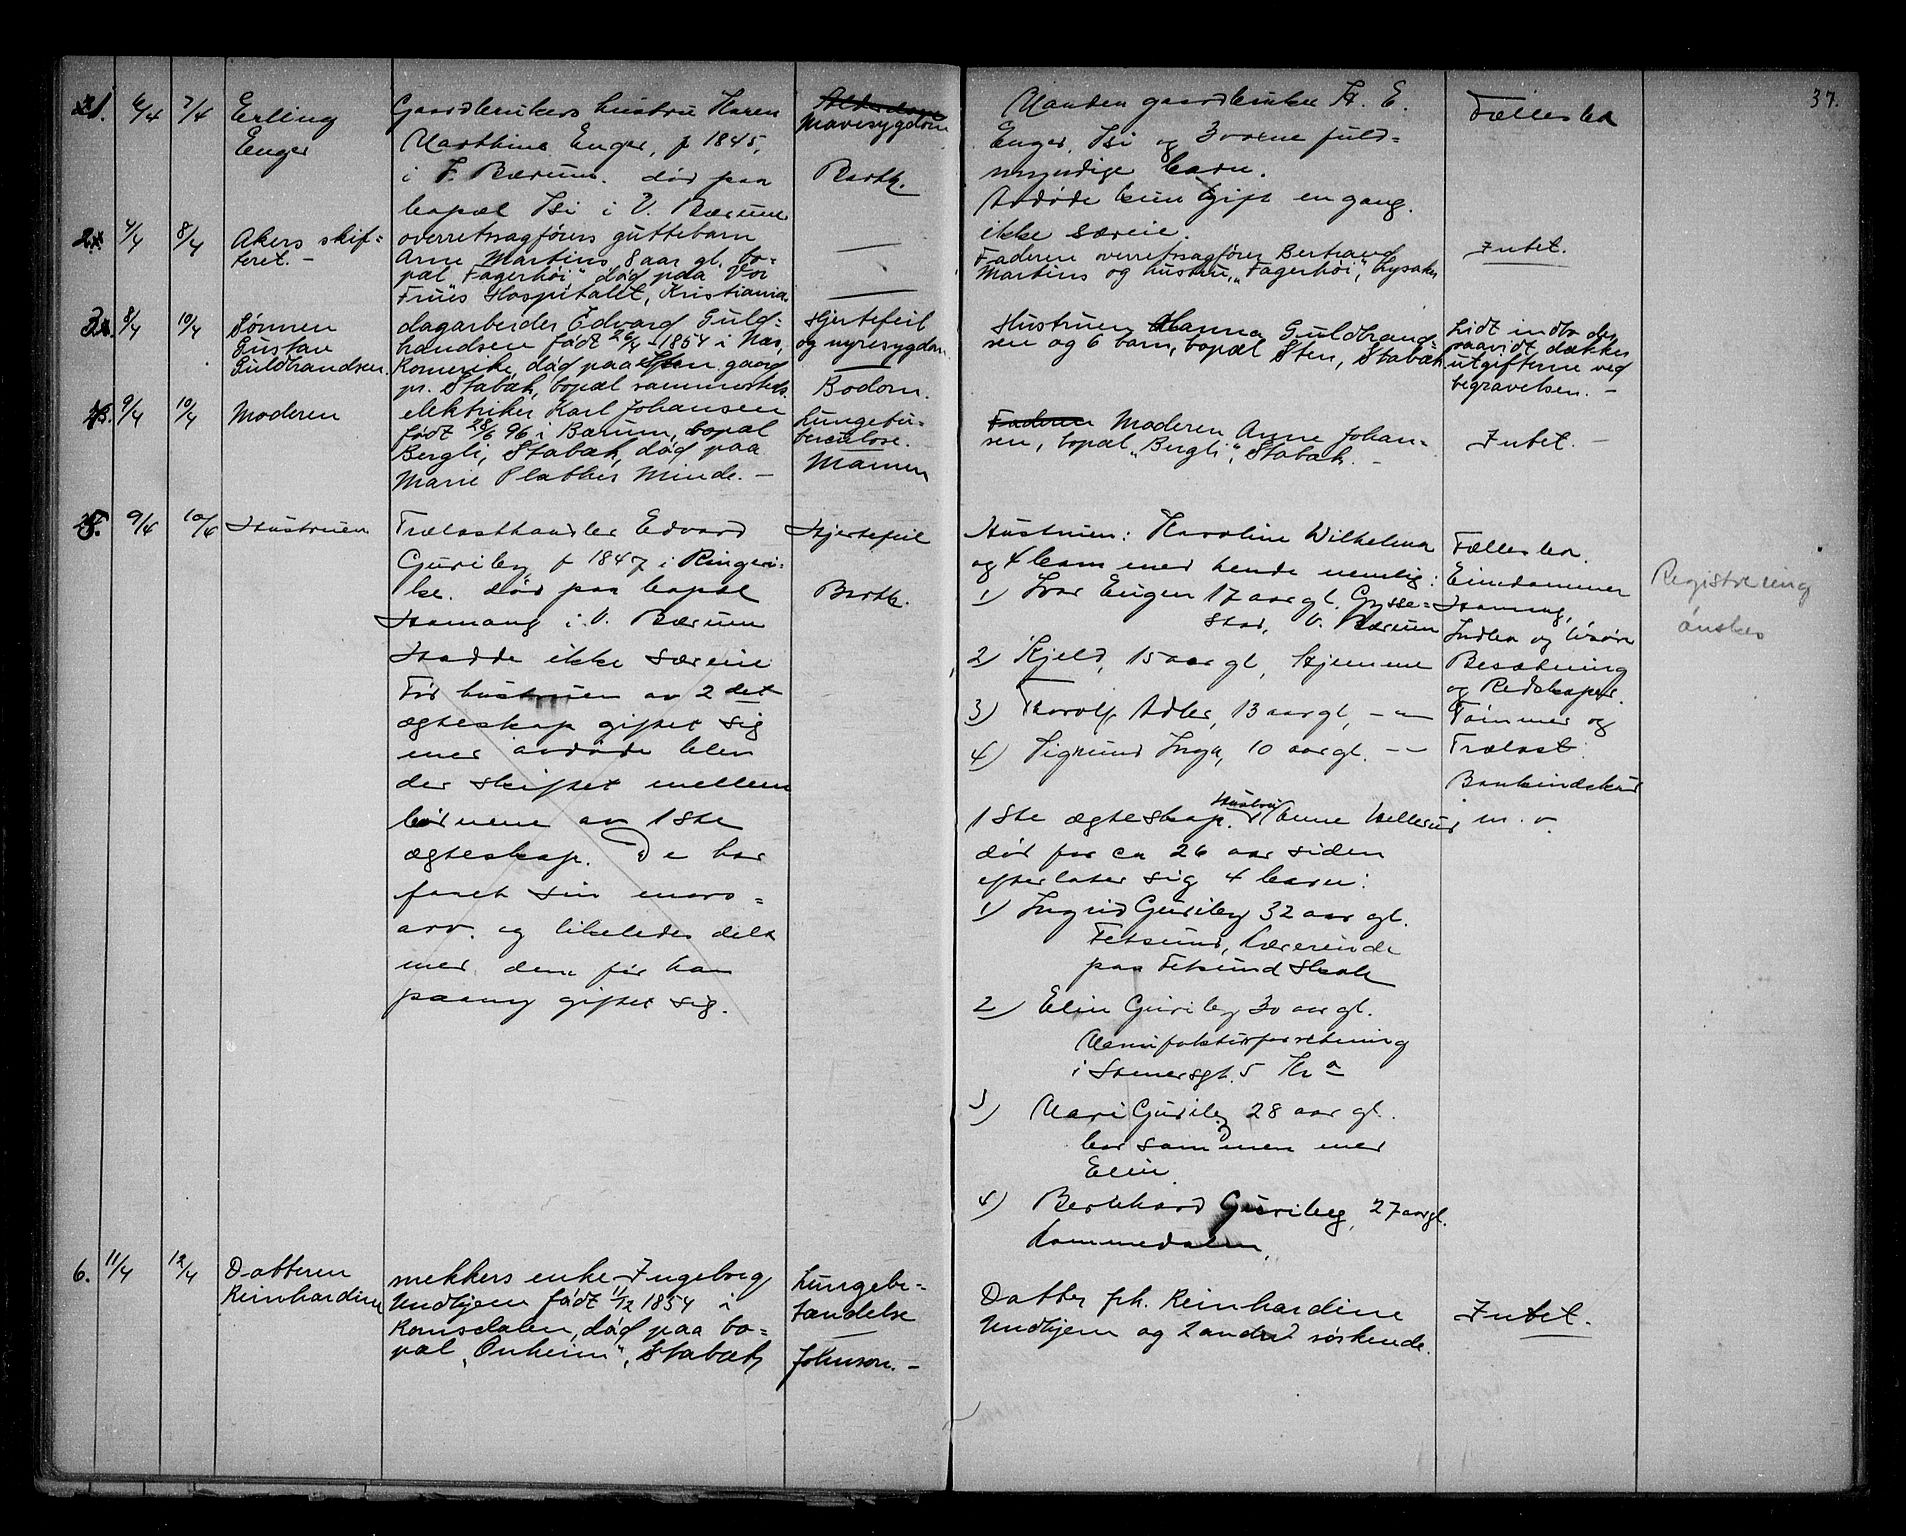 37.
1. 6/4 7/4 Erling
Enger
Gaardbrukers hustru Karen
Marthine Enger, f 1845,
i V. Bærum. død paa
bopæl Isi i V. Bærum
Mavesygdom
Barth.
Manden gaardbruker K. E.
Enger, Isi og 3 voxne fuld=
myndige barn.
Avdøde kun gift en gang.
ikke særeie.
Fællesbo
2. 4/4 8/4 Akers skif=
teret. -
overretssagførers guttebarn
Arne Martins, 8 aar gl. bo-
pæl "Fagerhøi" død paa Vor
Frues Hospitalet, Kristiania
Faderen overretssagfører Bertrand
Martins og hustru, "Fagerhøi", Lysaker
Intet.
3. 8/4 10/4 Sønnen
Gustav
Guldbrandsen
dagarbeider Edvard Guld-
brandsen født 26/4 - 1854 i Næs,
Romerike, død paa Sten gaard
pr. Stabæk, bopæl sammesteds.
Hjertefeil
og nyresygdom
Bodom.
Hustruen Hanna Guldbrand-
sen og 6 barn, bopæl Sten, Stabæk
Lidt indbo der
saavidt dækker
utgifterne ved
begravelsen. -
4. 9/4 10/4 Moderen
elektriker Karl Johansen
født 28/6 96 i Bærum, bopæl
Bergli, Stabæk, død paa
Marie Plathes Minde. -
Lungetu-
berculose.
Mamen
Faderen Moderen Anne Johan-
sen, bopæl "Bergli", Stabæk. -
Intet. -
5. 9/4 10/4 Hustruen
Trælasthandler Edvard
Guriby f 1847 i Ringeri-
ke. død paa bopæl
Hamang i V. Bærum
Hadde ikke særeie
Før hustruen av 2 det
ægteskap giftet sig
med avdøde blev
der skiftet mellem
børnene av 1ste
ægteskap. De har
faaet sin mors=
arv. og likeledes delt
med dem før han
paany giftet sig.
Hjertefeil
Barth.
Hustruen: Karoline Wilhelmine
og 4 barn med hende nemlig:
1) Ivar Eugen 17 aar gl. Gysse=
stad, V. Bærum
2) Kjeld, 15 aar gl, Hjemme
3) Thorolf Adler, 13 aar gl, - " -
4) Sigmund Inga, 10 aar gl. - -
1ste ægteskap. Hustru Anne
død for ca 26 aar siden
efterlater sig 4 barn:
1) Ingrid Guriby 32 aar gl.
Fetsund, Lærerinde
paa Fetsund Skole
2) Elin Guriby 30 aar gl.
Manufakturforretning
i Stenersgt. 5 Kr a
3) Mari Guriby 28 aar gl.
bor sammen med
Elin
4) Bernhard Guriby, 27 aar gl.
Lommedalen.
Fællesbo.
Eiendommen
Hamang,
Indbo og løsøre
Besætning
og Redskaper.
Tømmer og
Trælast.
Bankindskud
m. v.
Registrering
ønskes
6. 11/4 12/4 Datteren
Reinhardine
snekkers enke Ingeborg
Undhjem født 11/12 1854 i
Romsdalen, død paa bo=
pæl "Onheim", Stabæk
Lungebe-
tændelse
Johnson. -
Datter frk. Reinhardine
Undhjem og 2 andre søskende.
Intet.